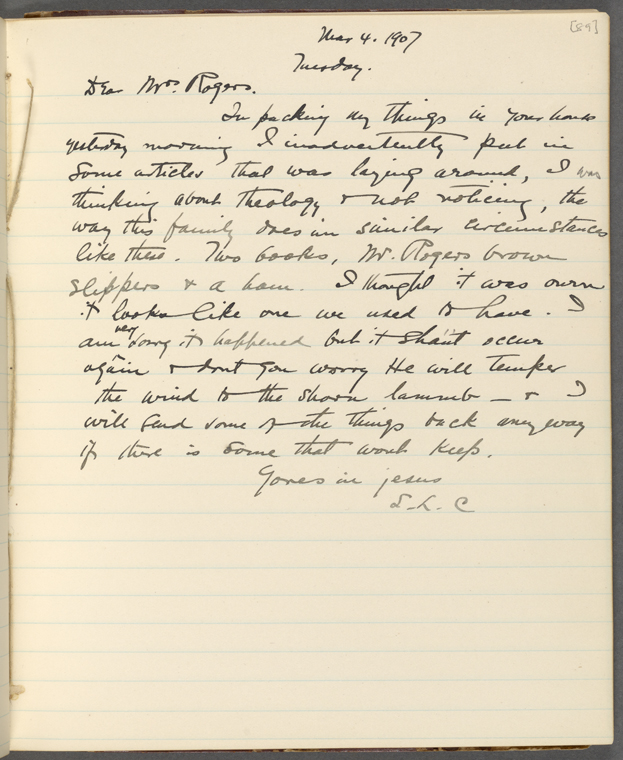 [89]
Mar 4. 1907
Tuesday.
Dear Mrs. Rogers.
In packing my things in your house
yesterday morning I inadvertently put in
some articles that was laying around, I was
thinking about theology & not noticing, the
way this family does in similar circumstances
like these. Two books, Mr. Rogers brown
slippers & a ham. I thought it was ourn
it looks like one we used to have. I
am very sorry it happened but it shant occur
again & dont you worry He will temper
the wind to the shorn lamb — & I
will send some of the things back anyway
if there is some that wont keep.
Yores in jesus
S. L. C